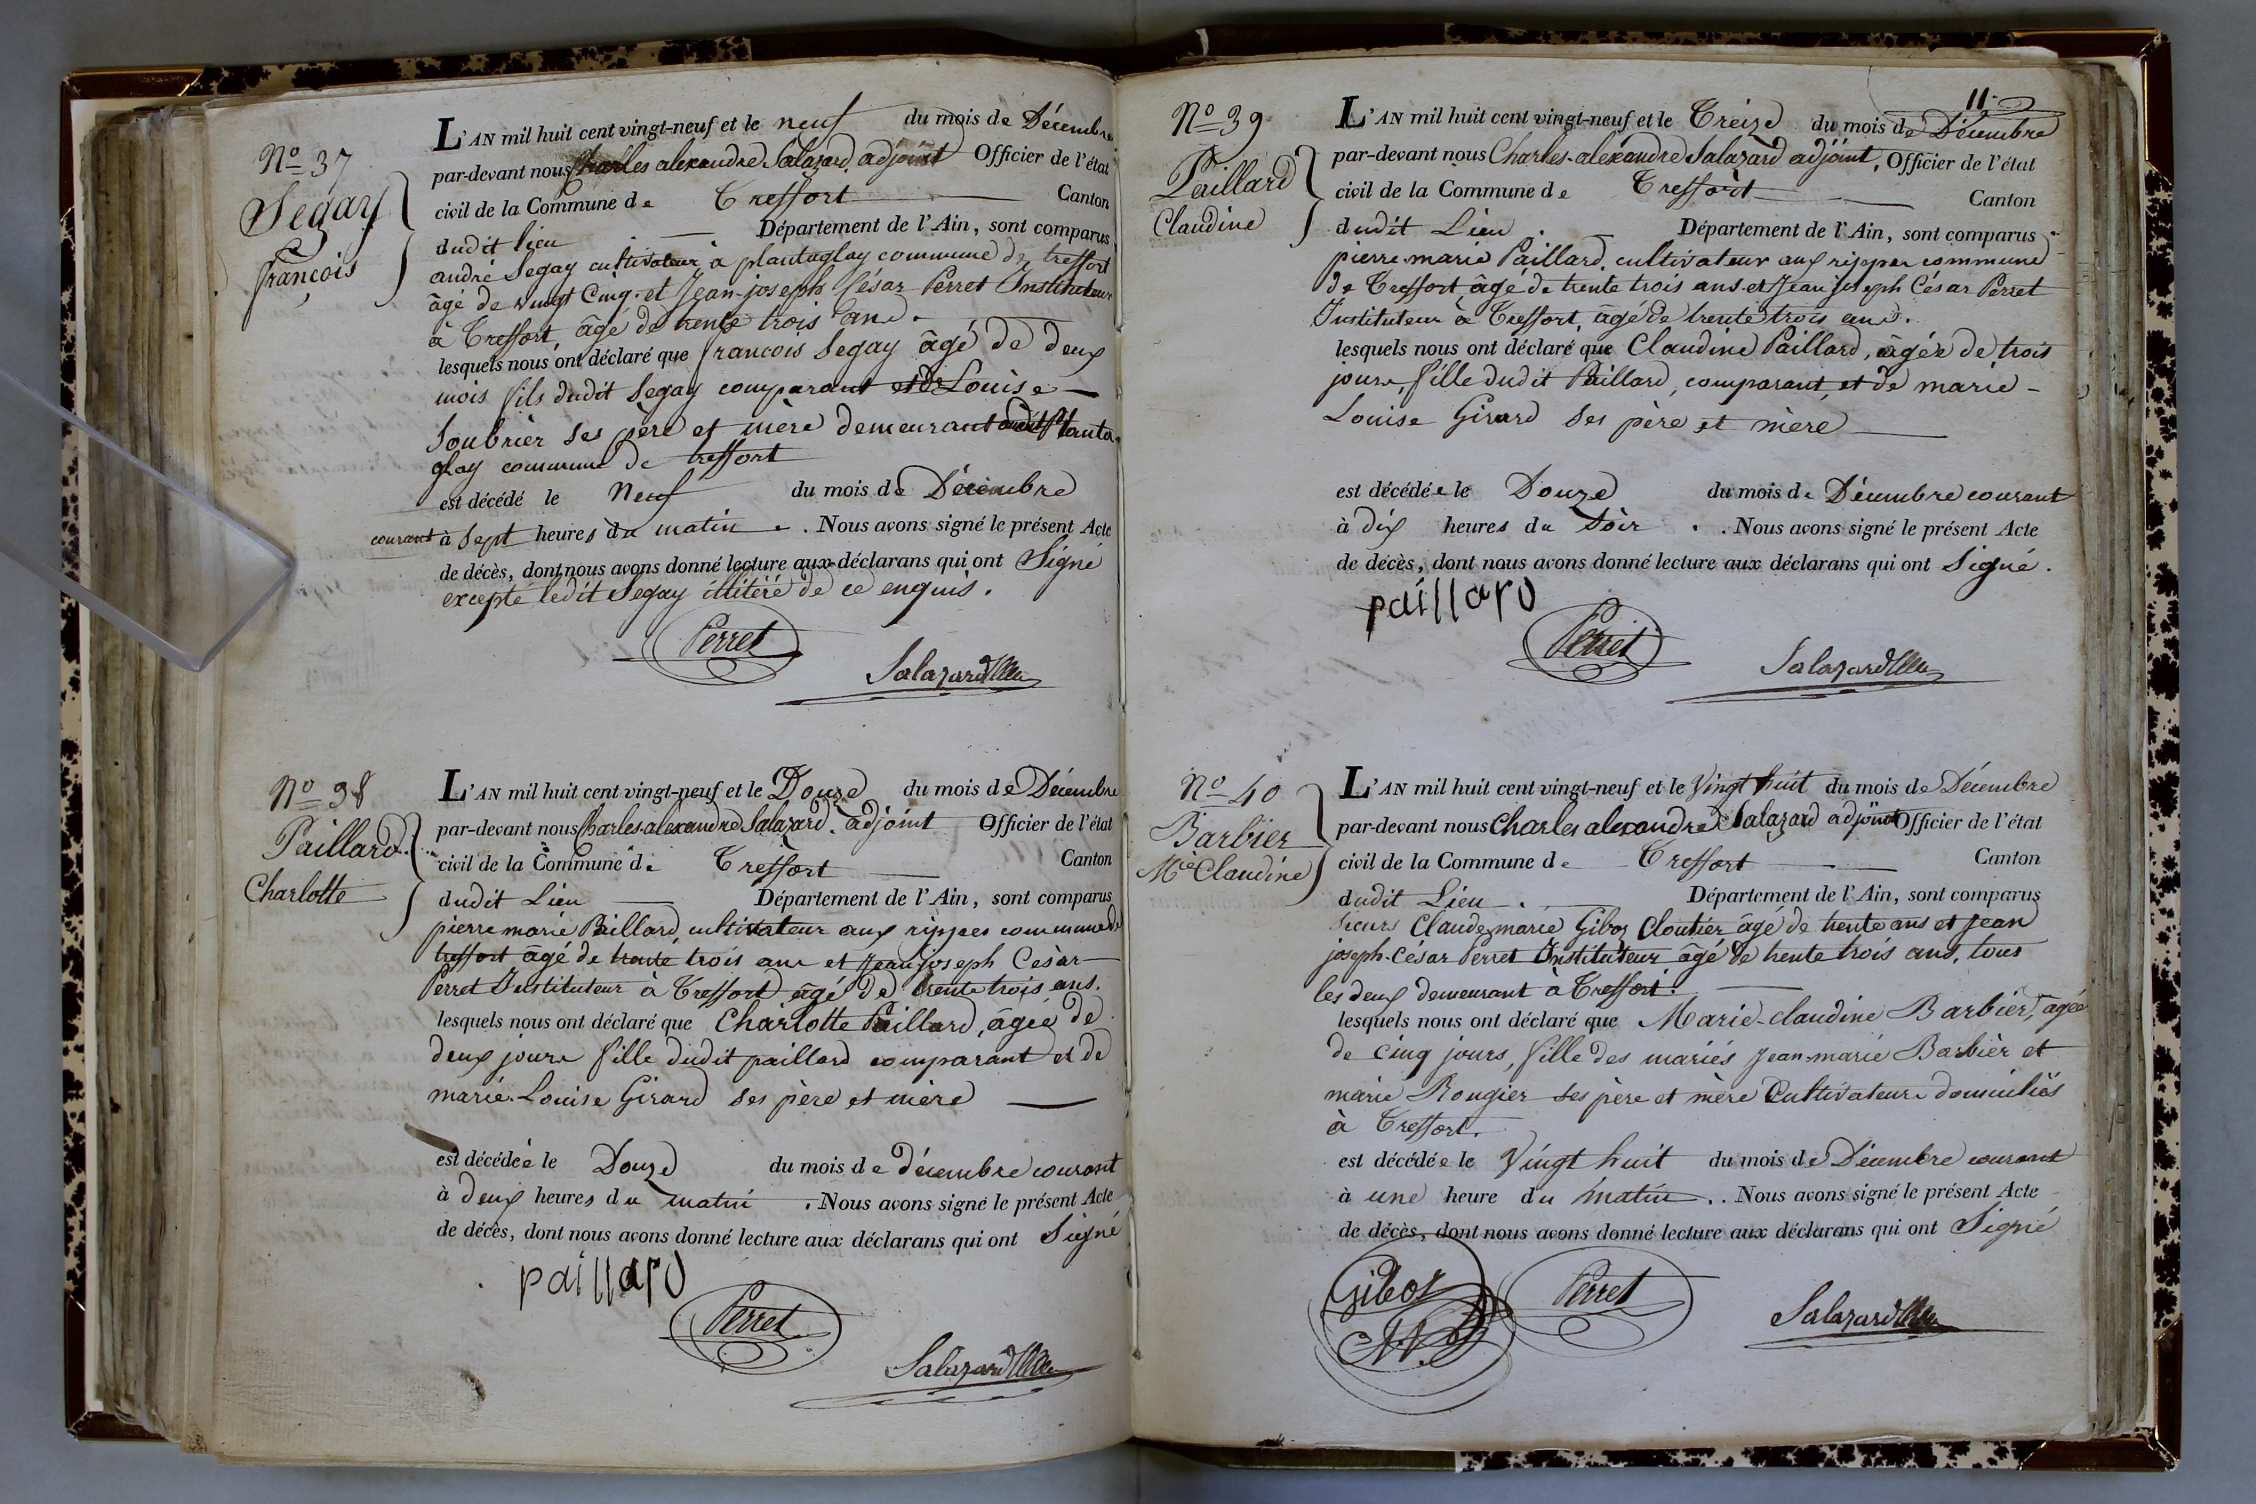 No 37
Segay
françois
L'AN mil huit cent vingt-neuf et le neuf du mois de Décembre
par-devant nous Charles alexandre Salazard, adjoint Officier de l'état
civil de la Commune de Treffort Canton
dudit lieu Département de l'Ain, sont comparus
andré Segay cultivateur à plantaglay commune de treffort
âgé de vingt Cinq. et Jean-joseph César Perret Instituteur
à Treffort, âgé de trente trois ans.
lesquels nous ont déclaré que francois Segay âgé de deux
mois fils dudit Segay comparant et de Louise
Soubrier ses père et mère demeurant audit Planta-
glay commune de treffort
est décédé le Neuf du mois de Décembre
courant à Sept heures du matin. Nous avons signé le présent Acte
de décès, dont nous avons donné lecture aux déclarans qui ont Signé
excepté ledit Segay illitéré de ce enquis.
Perret
Salazard
No 38
Paillard
Charlotte
L'AN mil huit cent vingt-neuf et le Douze du mois de Décembre
par-devant nous Charles alexandre Salazard, adjoint Officier de l'état
civil de la Commune de Treffort Canton
dudit Lieu Département de l'Ain, sont comparus
pierre marie Paillard, cultivateur aux rippes commune de
treffort âgé de trente trois ans et Jean joseph César
Perret Instituteur à Treffort âgé de trente trois ans.
lesquels nous ont déclaré que Charlotte Paillard, âgée de
deux jours fille dudit paillard comparant et de
marie Louise Girard ses père et mère
est décédée le Douze du mois de décembre courant
à deux heures du matin. Nous avons signé le présent Acte
de décès, dont nous avons donné lecture aux déclarans qui ont Signé
paillard
Perret
Salazard
11
No 39
Paillard
Claudine
L'AN mil huit cent vingt-neuf et le Treize du mois de Décembre
par-devant nous Charles-alexandre Salazard adjoint, Officier de l'état
civil de la Commune de Treffort Canton
dudit Lieu. Département de l'Ain, sont comparus
pierre-marie Paillard, cultivateur aux rippes commune
de Treffort âgé de trente trois ans et Jean joseph César Perret
Instituteur à Treffort, âgé de trente trois ans.
lesquels nous ont déclaré que Claudine Paillard, âgée de trois
jours, fille dudit Paillard, comparant, et de marie-
Louise Girard ses père et mère
est décédée le Douze du mois de Décembre courant
à dix heures du Soir. Nous avons signé le présent Acte
de décès, dont nous avons donné lecture aux déclarans qui ont Signé.
paillard
Perret
Salazard
No 40
Barbier
Mie Claudine
L'AN mil huit cent vingt-neuf et le Vingt huit du mois de Décembre
par-devant nous Charles alexandre Salazard adjoint Officier de l'état
civil de la Commune de Treffort Canton
dudit Lieu. Département de l'Ain, sont comparus
sieurs Claude marie Giboz Cloutier âgé de trente ans et Jean
joseph-César Perret Instituteur âgé de trente trois ans, tous
les deux demeurant à Treffort.
lesquels nous ont déclaré que Marie-claudine Barbier, âgée
de Cinq jours, fille des mariés Jean-marie Barbier et
marie Rougier ses père et mère Cultivateurs domiciliés
à Treffort.
est décédée le Vingt huit du mois de Décembre courant
à une heure du matin. Nous avons signé le présent Acte
de décès, dont nous avons donné lecture aux déclarans qui ont Signé
Giboz
Perret
Salazard